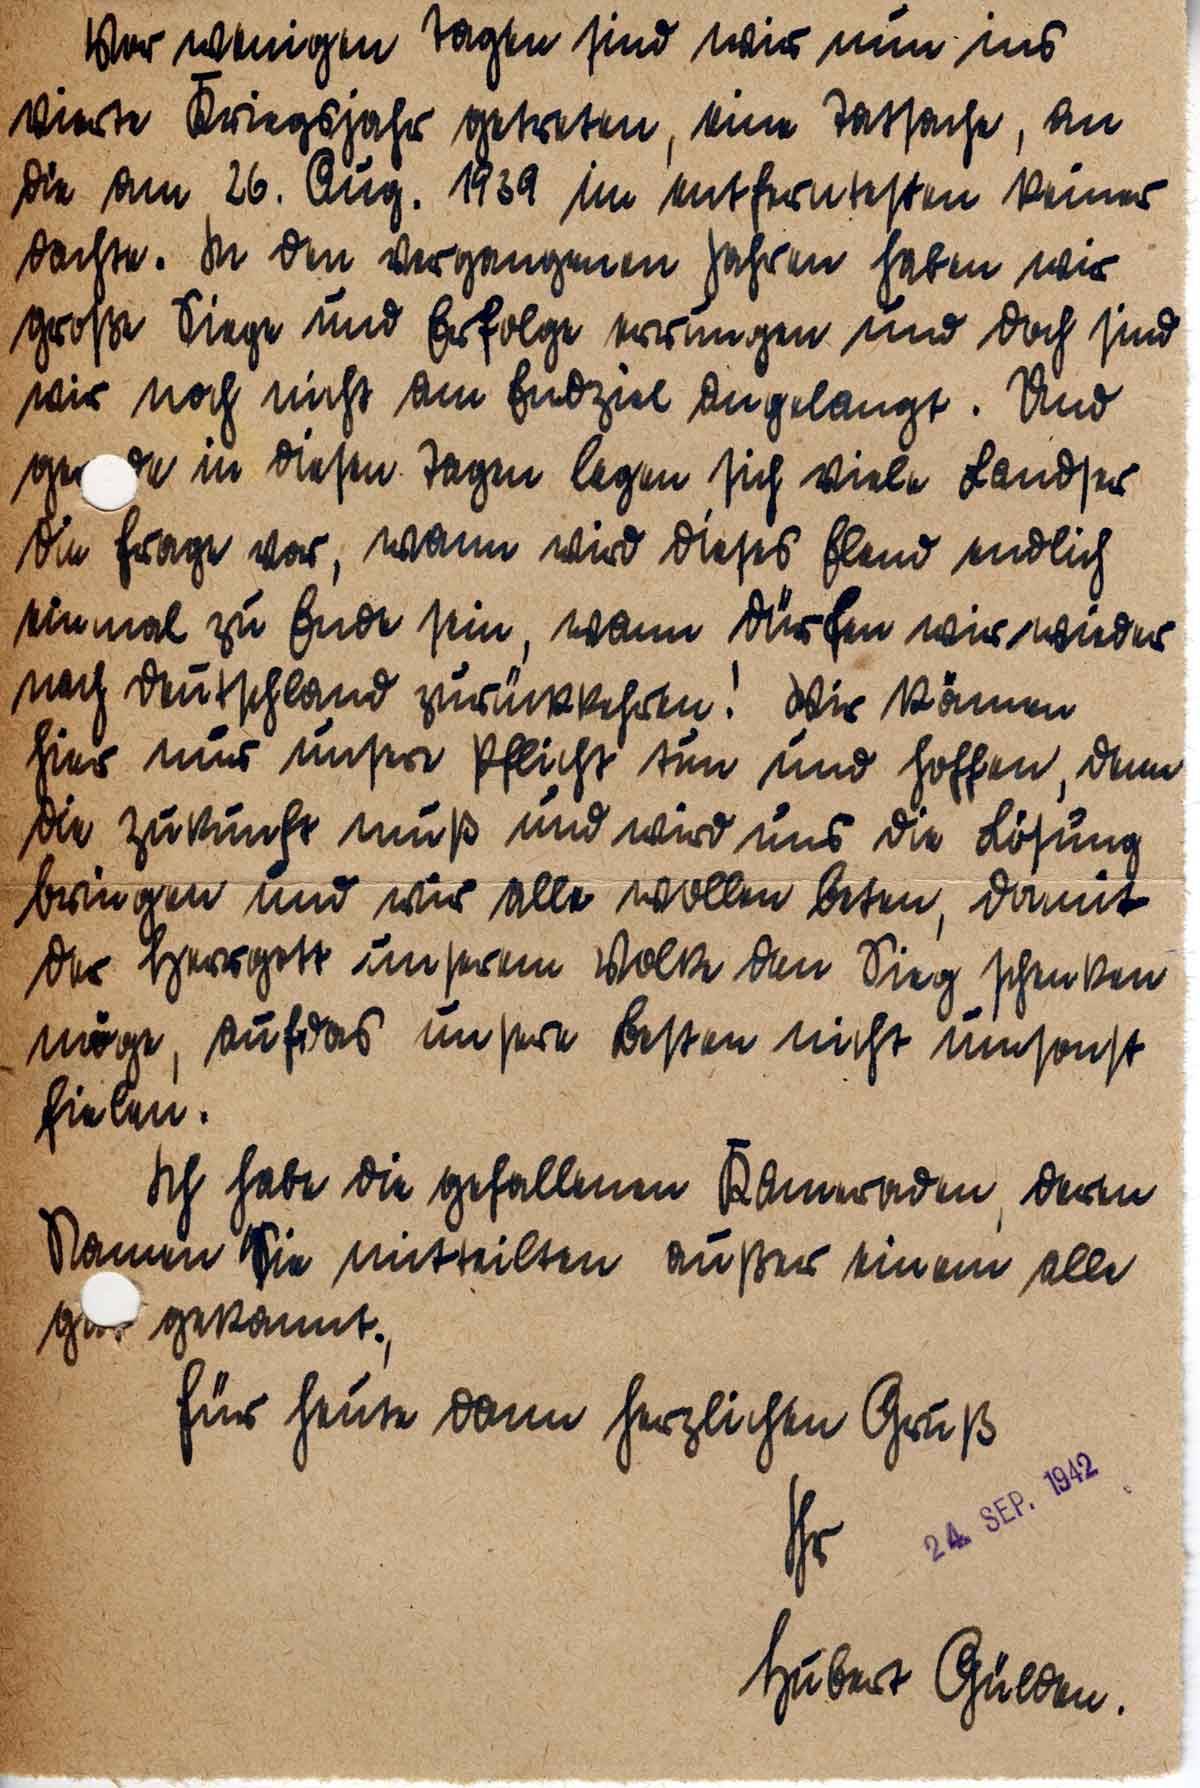 Vor wenigen Tagen sind wir nun ins
vierte Kriegsjahr getreten, eine Tatsache, an
die am 26. Aug. 1939 im entferntesten keiner
dachte. In den vergangenen Jahren haben wir
große Siege und Erfolge errungen und doch sind
wir noch nicht am Endziel angelangt. Und
ge de in diesen Tagen legen sich viele Landser
die Frage vor, wann wird dieses Elend endlich
einmal zu Ende sein, wann dürfen wir wieder
nach Deutschland zurückkehren! Wir können
hier nur unsere Pflicht tun und hoffen, denn
die Zukunft muß und wird uns die Lösung
bringen und wir alle wollen beten, damit
der Herrgott unserem Volke den Sieg schenken
möge, aufdas unsere Besten nicht umsonst
fielen.
Ich habe die gefallenen Kameraden, deren
Namen Sie mitteilten außer einem alle
gut gekannt.,
Für heute dann herzlichen Gruß
Ihr
24. SEP. 1942
Hubert Gülden.